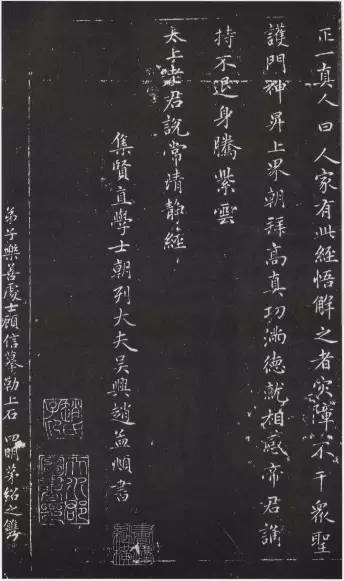 正一真人曰人家有此經悟解之者灾障不干衆聖
護門神昇上界朝拜高真功滿德就相感帝君誦
持不退身騰紫雲
太上老君說常清靜經
集賢直學士朝列大夫吳興趙孟頫書
弟子樂善處士顧信摹勒上石 四明茅紹之鐫
趙氏子昂
天水郡圖書印